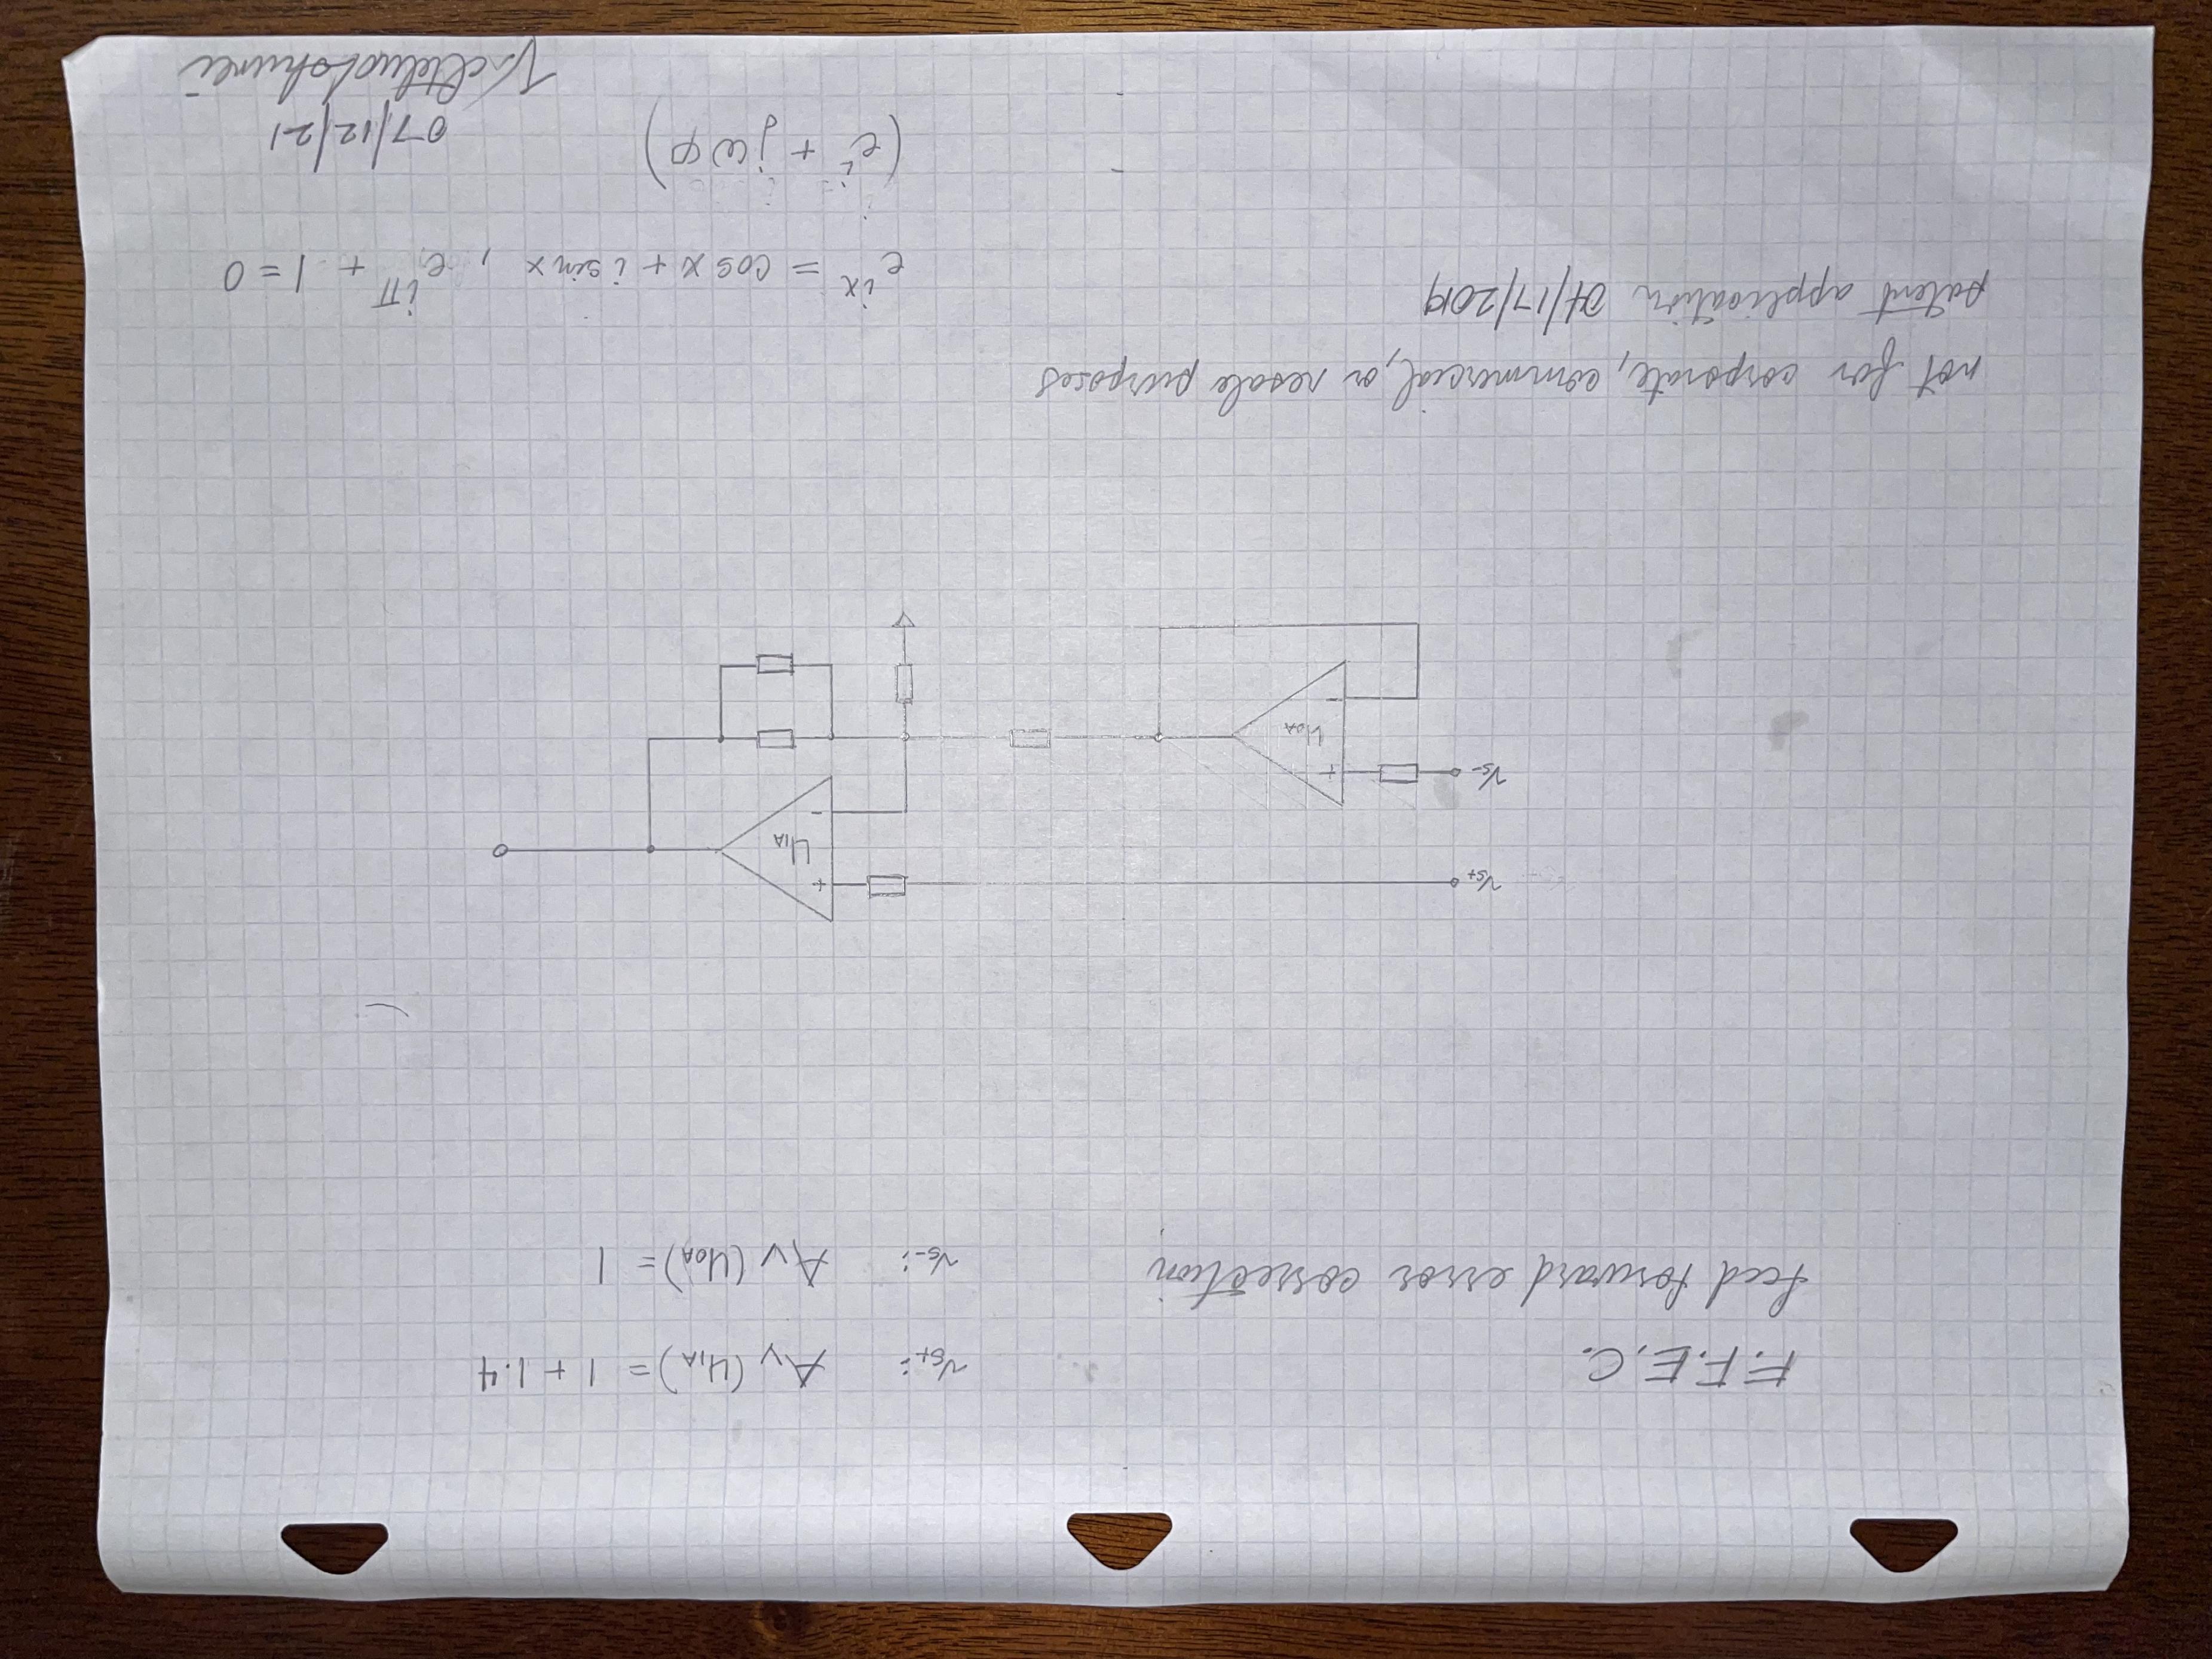 F.F.E.C.
feed forward error correction
Vs+: Av (U1A) = 1 + 1.4
Vs-: Av (U0A) = 1
Vs+
+
U1A
-
Vs-
+
U0A
-
not for corporate, commercial, or resale purposes
patent application 04/17/2019
e^ix = cos x + i sin x , e^iπ + 1 = 0
(e^i + jωφ)
07/12/21